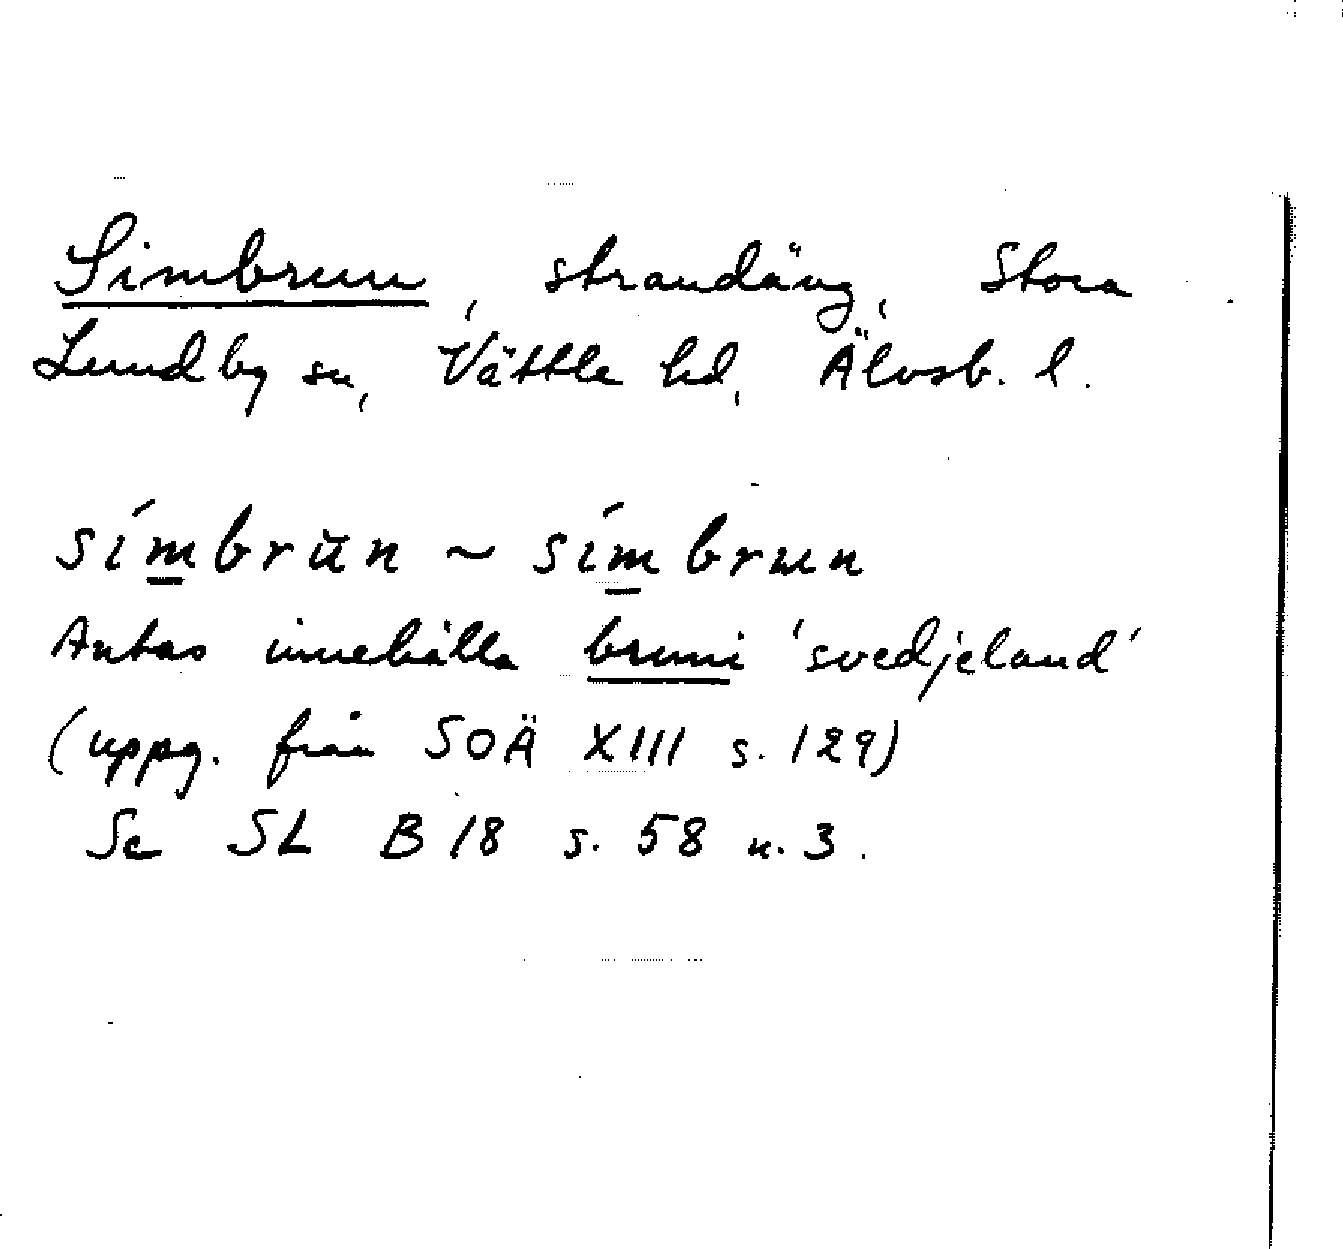 Simbrun, strandäng, Stora
Lundby sn, Vättle hd, Älvsb. l.
símbrŭn ~ símbrun
Antas innehålla bruni 'svedjeland'
(uppg. från SOÄ XIII s. 129)
Se SL B 18 s. 58 n. 3.